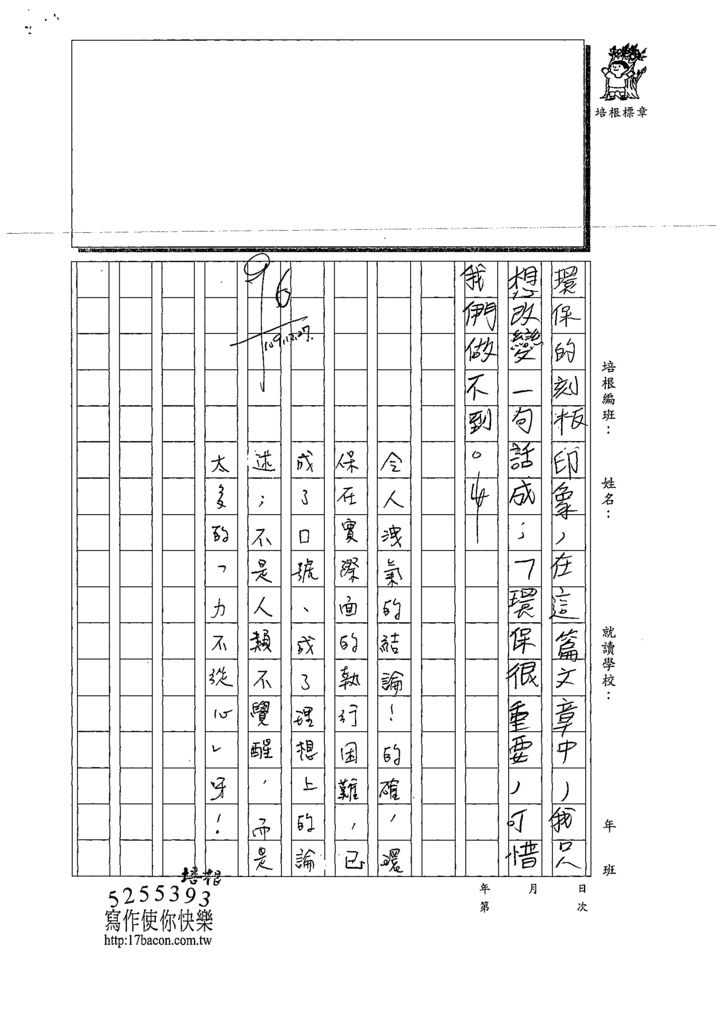 培根標章
培根編班：
姓名：
就讀學校：
年 班
環保的刻板印象，在這篇文章中，我只
想改變一句話成；「環保很重要，可惜
我們做不到。
令人洩氣的結論！的確，環
保在實際面的執行困難，已
成了口號、成了理想上的論
述；不是人類不覺醒，而是
太多的「力不從心」呀！
96
109.12.27.
日 次
月
年 第
培根
5255393
寫作使你快樂
http:17bacon.com.tw